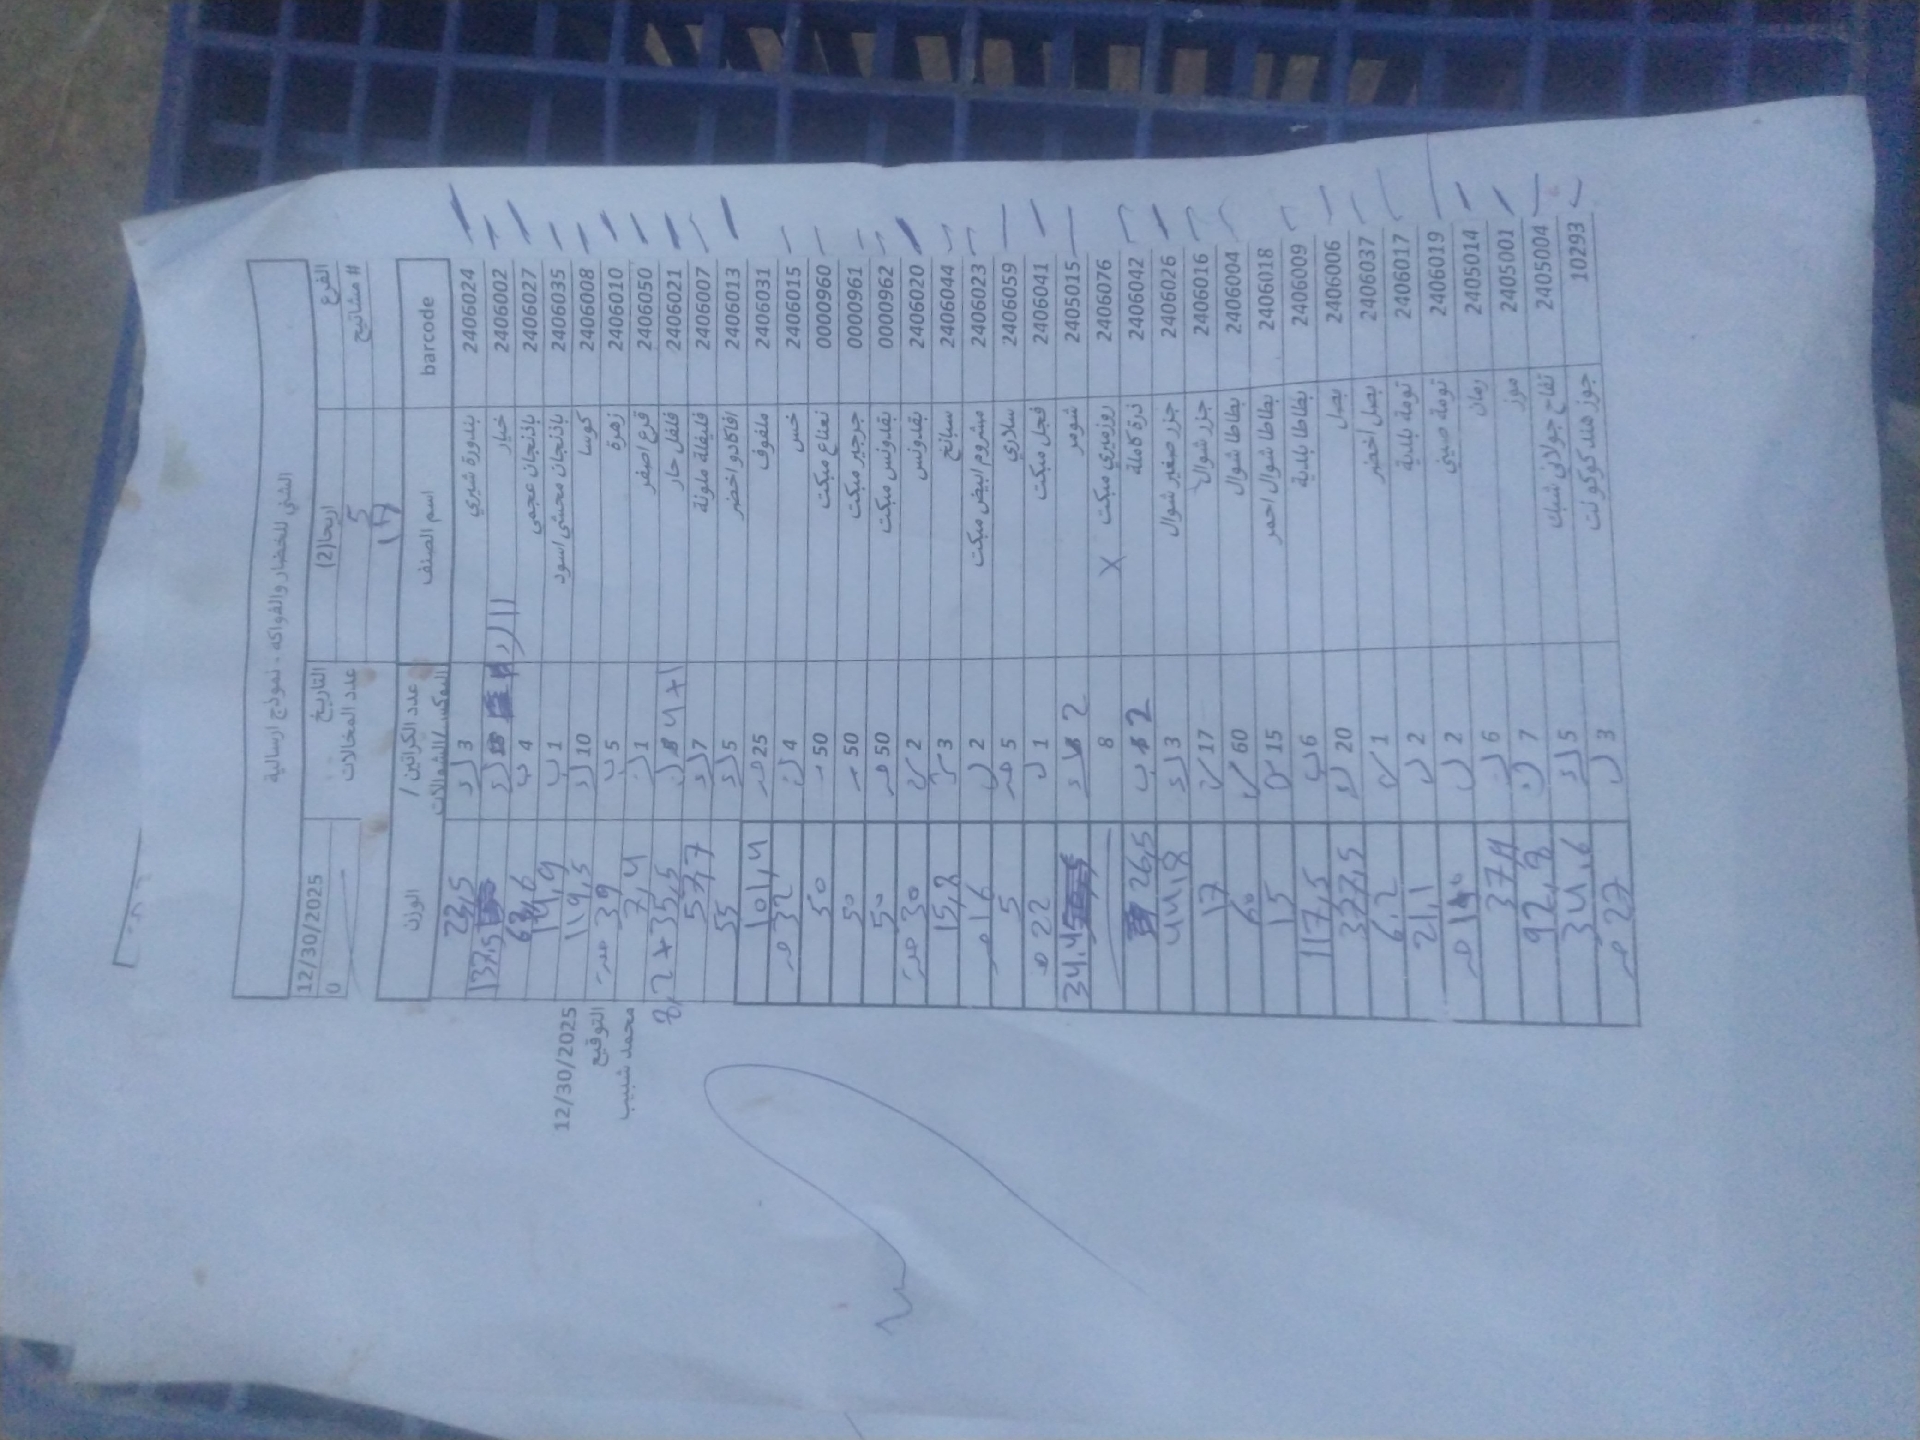 الشني للخضار والفواكه - نموذج ارسالية
الفرع اريحا(2) التاريخ 12/30/2025
#مشاتيح 5 عدد المخالات 0
17
barcode اسم الصنف عدد الكراتين / البوكس/الشوالات الوزن
2406024 بندورة شيري 3 23,5
2406002 خيار 137,5
2406027 باذنجان عجمي 4 ب 63,6
2406035 باذنجان محشي اسود 1 ب 14,9
2406008 كوسا 10 119,5
2406010 زهرة 5 ب 39
2406050 قرع اصفر 1 7,4
2406021 فلفل حار 4+1 8,2+35,5
2406007 فليفلة ملونة 7 57,7
2406013 افاكادو اخضر 5 55
2406031 ملفوف 25 101,4
2406015 خس 4 32
0000960 نعناع مبكت 50 50
0000961 جرجير مبكت 50 50
0000962 بقدونس مبكت 50 50
2406020 بقدونس 2 30
2406044 سبانخ 3 15,8
2406023 مشروم ابيض مبكت 2 16
2406059 سلاري 5 5
2406041 فجل مبكت 1 22
2405015 شومر 2 34.4
2406076 روزميري مبكت X 8
2406042 ذرة كاملة 2 26,5
2406026 جزر صغير شوال 3 44,8
2406016 جزر شوال 17 17
2406004 بطاطا شوال 60 60
2406018 بطاطا شوال احمر 15 15
2406009 بطاطا بلدية 6 ب 117,5
2406006 بصل 20 377,5
2406037 بصل اخضر 1 6,2
2406017 تومة بلدية 2 21,1
2406019 تومة صيني 2
2405014 رمان 6 37,4
2405001 موز 7 92,8
2405004 تفاح جولاني شبك 5 34,6
10293 جوز هند كوكو نت 3 27
12/30/2025
التوقيع
محمد شبيب